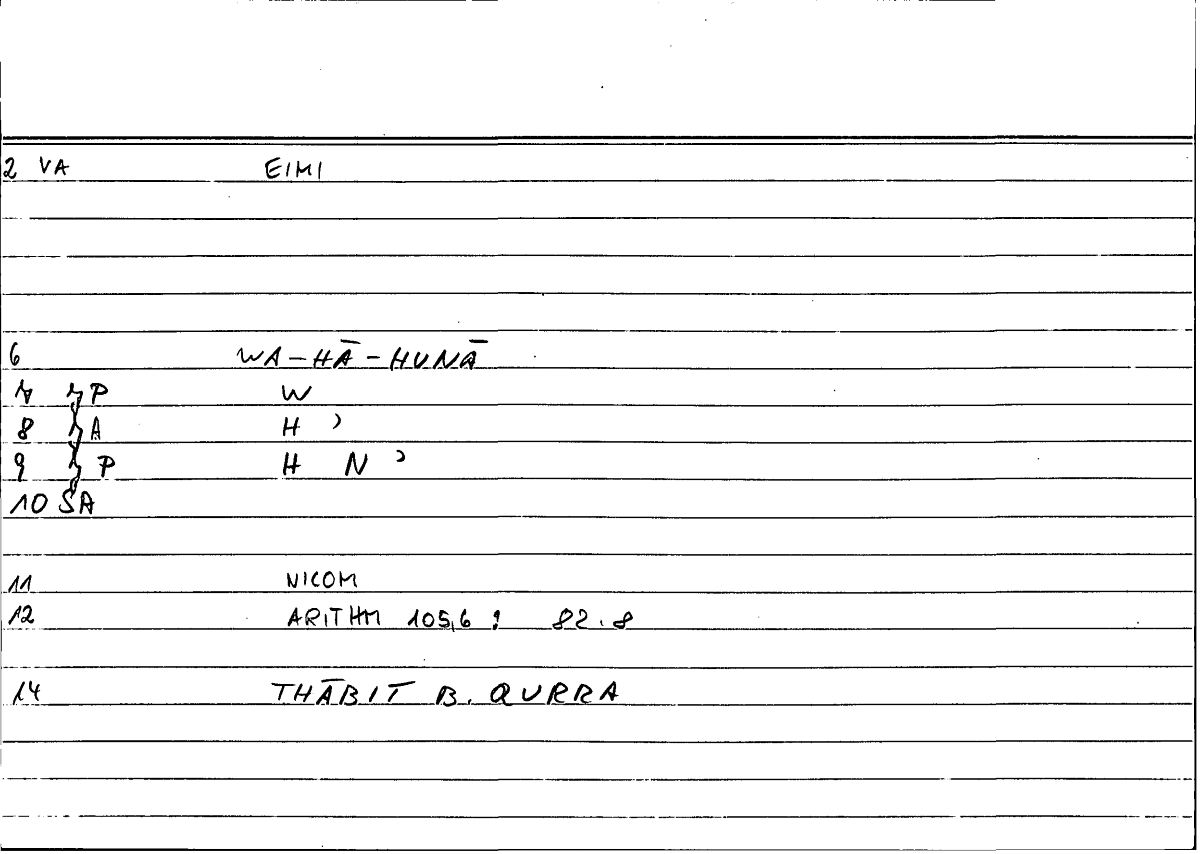 2 VA EIMI
6 WA-HĀ-HUNĀ
7 P W
8 A H ʾ
9 P H N ʾ
10 SA
11 NICOM
12 ARITHM 105,6 : 82.8
14 THĀBIT B. QURRA